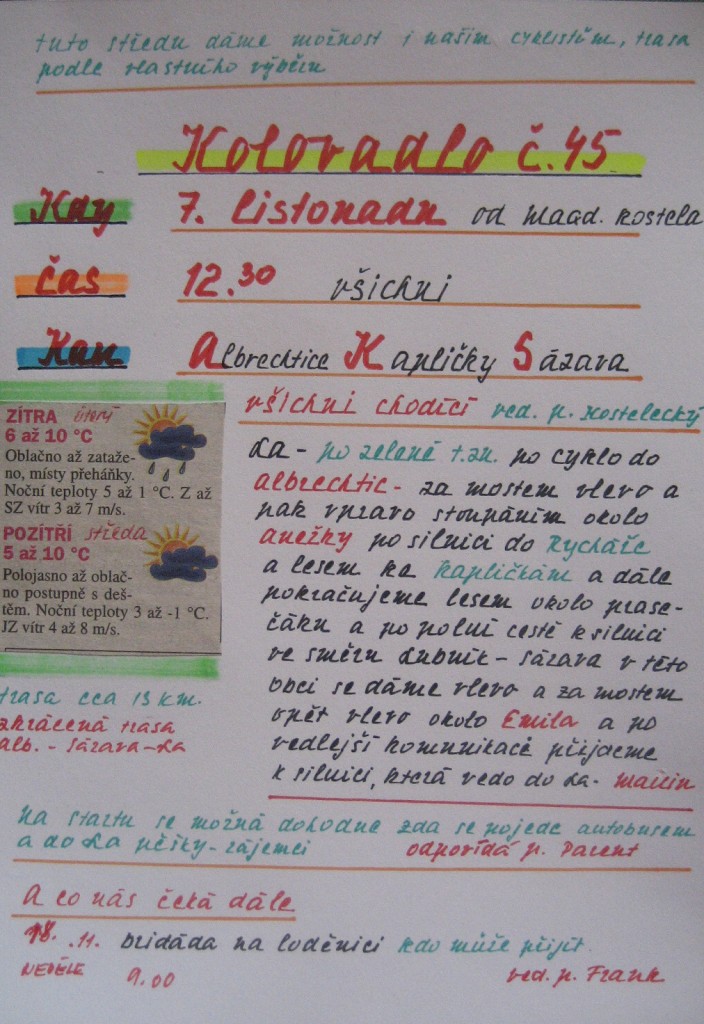 tuto středu dáme možnost i našim cyklistům, trasa
podle vlastního výběru
Kolovadlo č.45
Kdy 7. listopadu od Magd. kostela
čas 12.30 všichni
Kam Albrechtice Kapličky Sázava
ZÍTRA úterý
6 až 10 °C
Oblačno až zataže-
no, místy přeháňky.
Noční teploty 5 až 1 °C. Z až
SZ vítr 3 až 7 m/s.
POZÍTŘÍ středa
5 až 10 °C
Polojasno až oblač-
no postupně s deš-
těm. Noční teploty 3 až -1 °C.
JZ vítr 4 až 8 m/s.
trasa cca 13 km.
zkrácená trasa
alb. - Sázava-La
všichni chodící ved. p. Kostelecký
La- po zelené t.zn. po cyklo do
albrechtic- za mostem vlevo a
pak vpravo stoupáním okolo
anežky po silnici do Rycháře
a lesem ke kapličkám a dále
pokračujeme lesem okolo prase-
čáku a po polní cestě k silnici
ve směru Lubník - Sázava v této
obci se dáme vlevo a za mostem
opět vlevo okolo Emila a po
vedlejší komunikacě přijdeme
k silnici, která vede do La-
na startu se možná dohodne zda se pojede autobusem
a do La pěšky-zájemci odpovídá p. Parent
A co nás čeká dále
18. .11. bridáda na loděnici kdo může přijít.
NEDĚLE 9.00 ved. p. Frank